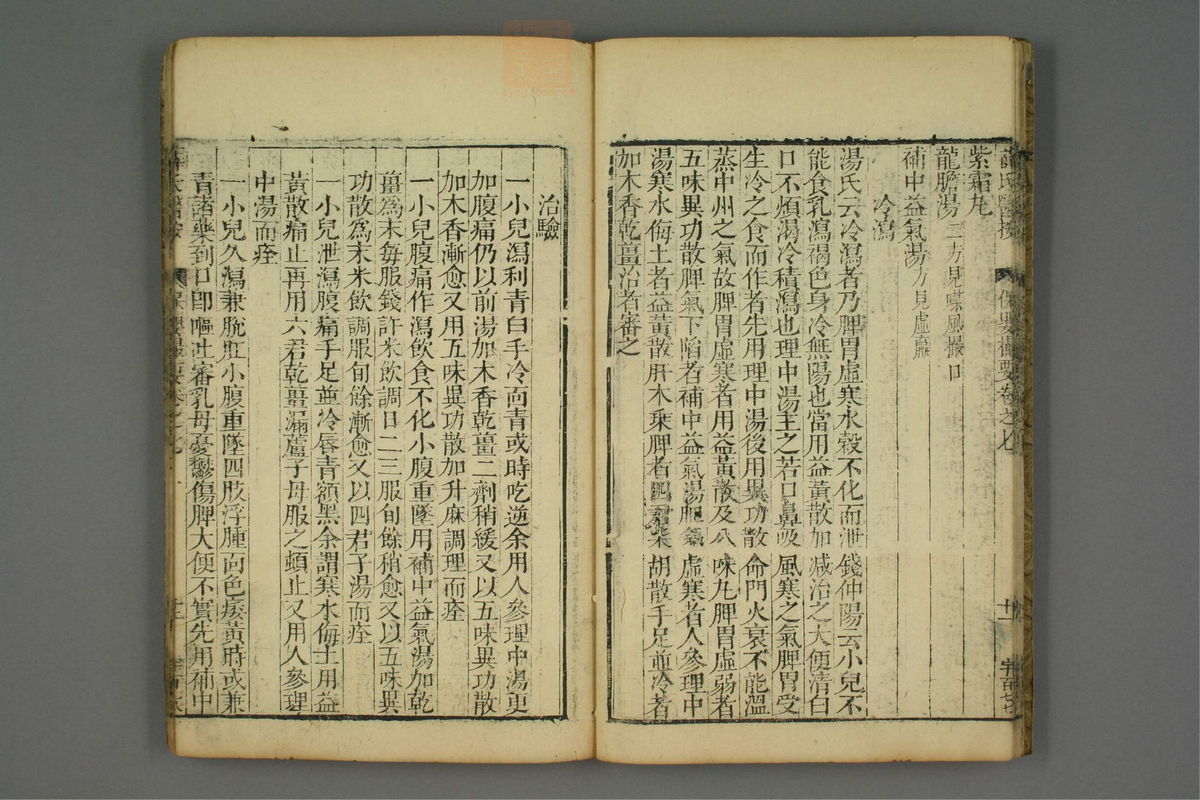 薛氏醫按 保嬰撮要卷之七 十一
紫霜丸
龍膽湯二方見噤風撮口
補中益氣湯方見虛羸
冷瀉
湯氏云冷瀉者乃脾胃虛寒水穀不化而泄錢仲陽云小兒不
能食乳瀉褐色身冷無陽也當用益黃散加减治之大便清白
口不煩渴冷積瀉也理中湯主之若口鼻吸風寒之氣脾胃受
生冷之食而作者先用理中湯後用異功散命門火衰不能溫
蒸中州之氣故脾胃虛寒者用益黃散及八味丸脾胃虛弱者
五味異功散脾氣下陷者補中益氣湯脾氣虛寒者人參理中
湯寒水侮土者益黃散肝木乘脾者四君柴胡散手足並冷者
加木香乾薑治者審之
治驗
一小兒瀉利青白手冷面青或時吃逆余用人參理中湯更
加腹痛仍以前湯加木香乾薑二劑稍緩又以五味異功散
加木香漸愈又用五味異功散加升麻調理而痊
一小兒腹痛作瀉飲食不化小腹重墜用補中益氣湯加乾
薑爲末每服錢許米飲調日二三服旬餘稍愈又以五味異
功散爲末米飲調服旬餘漸愈又以四君子湯而痊
一小兒泄瀉腹痛手足並冷唇青額黑余謂寒水侮土用益
黃散痛止再用六君乾薑漏蘆子母服之頓止又用人參理
中湯而痊
一小兒久瀉兼脫肛小腹重墜四肢浮腫面色痿黃時或兼
青諸藥到口卽嘔吐審乳母憂鬱傷脾大便不實先用補中
薛氏醫按 保嬰撮要卷之七 十一